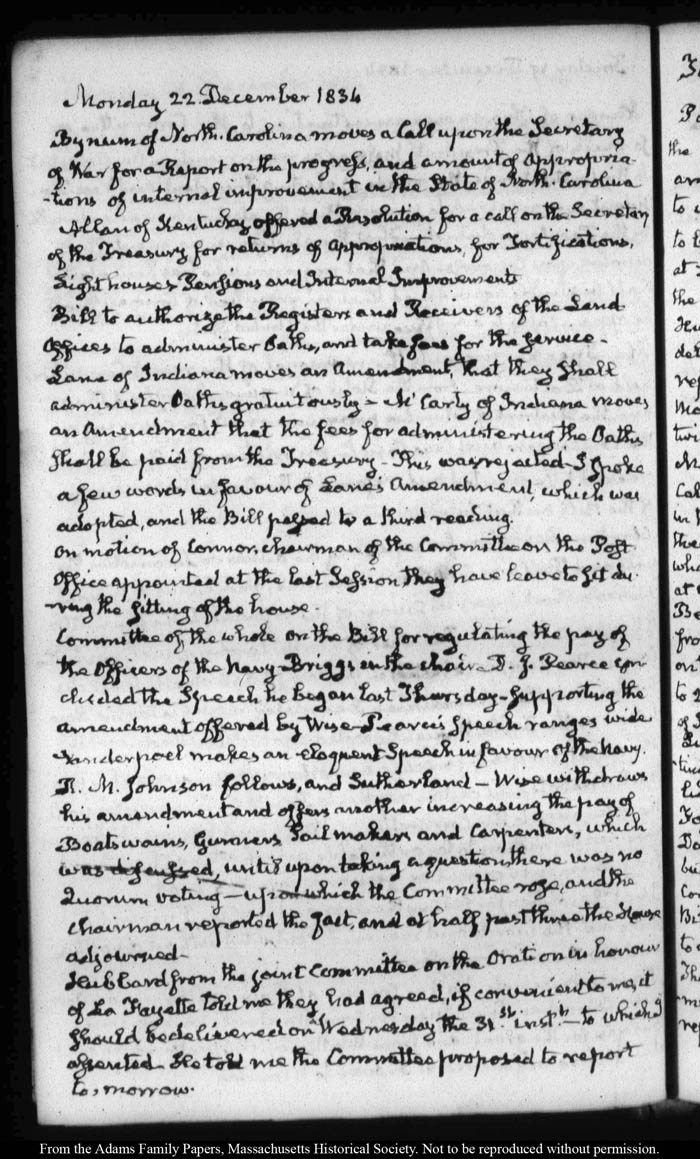 Monday 22. December 1834
Bynum of North-Carolina moves a Call upon the Secretary
of War for a Report on the progress, and amount of appropria-
-tions of internal improvement in the State of North-Carolina
Allan of Kentucky offered a Resolution for a call on the Secretary
of the Treasury for returns of appropriations, for Fortifications,
Light houses Pensions and Internal Improvements
Bill to authorize the Registers and Receivers of the Land
Offices to administer Oaths, and take fees for the service-
Lane of Indiana moves an amendment, that they shall
administer Oaths gratuitously- McCarty of Indiana moves
an Amendment that the fees for administering the Oaths
shall be paid from the Treasury- This was rejected- I spoke
a few words in favour of Lane's Amendment, which was
adopted, and the Bill passed to a third reading.
on motion of Connor, chairman of the Committee on the Post
Office appointed at the last Session, they have leave to sit du-
-ring the sitting of the house.
Committee of the whole on the Bill for regulating the pay of
the Officers of the Navy- Briggs in the chair. D. J. Pearce con-
cluded the Speech he began last Thursday- supporting the
amendment offered by Wise- Pearce's speech ranges wide
Vanderpoel makes an eloquent Speech in favour of the Navy.
R. M. Johnson follows, and Sutherland- Wise withdraws
his amendment and offers another increasing the pay of
Boatswains, Gunners Sailmakers and Carpenters, which
was discussed, until upon taking a question there was no
Quorum voting- upon which the Committee rose, and the
chairman reported the fact, and at half past three the House
adjourned-
Hubbard from the joint Committee on the Oration in honour
of La Fayette told me they had agreed, if convenient to me, it
should be delivered on Wednesday the 31.st inst.t- to which I
assented. He told me the Committee proposed to report
to-morrow.
the
to
at
the
From the Adams Family Papers, Massachusetts Historical Society. Not to be reproduced without permission.